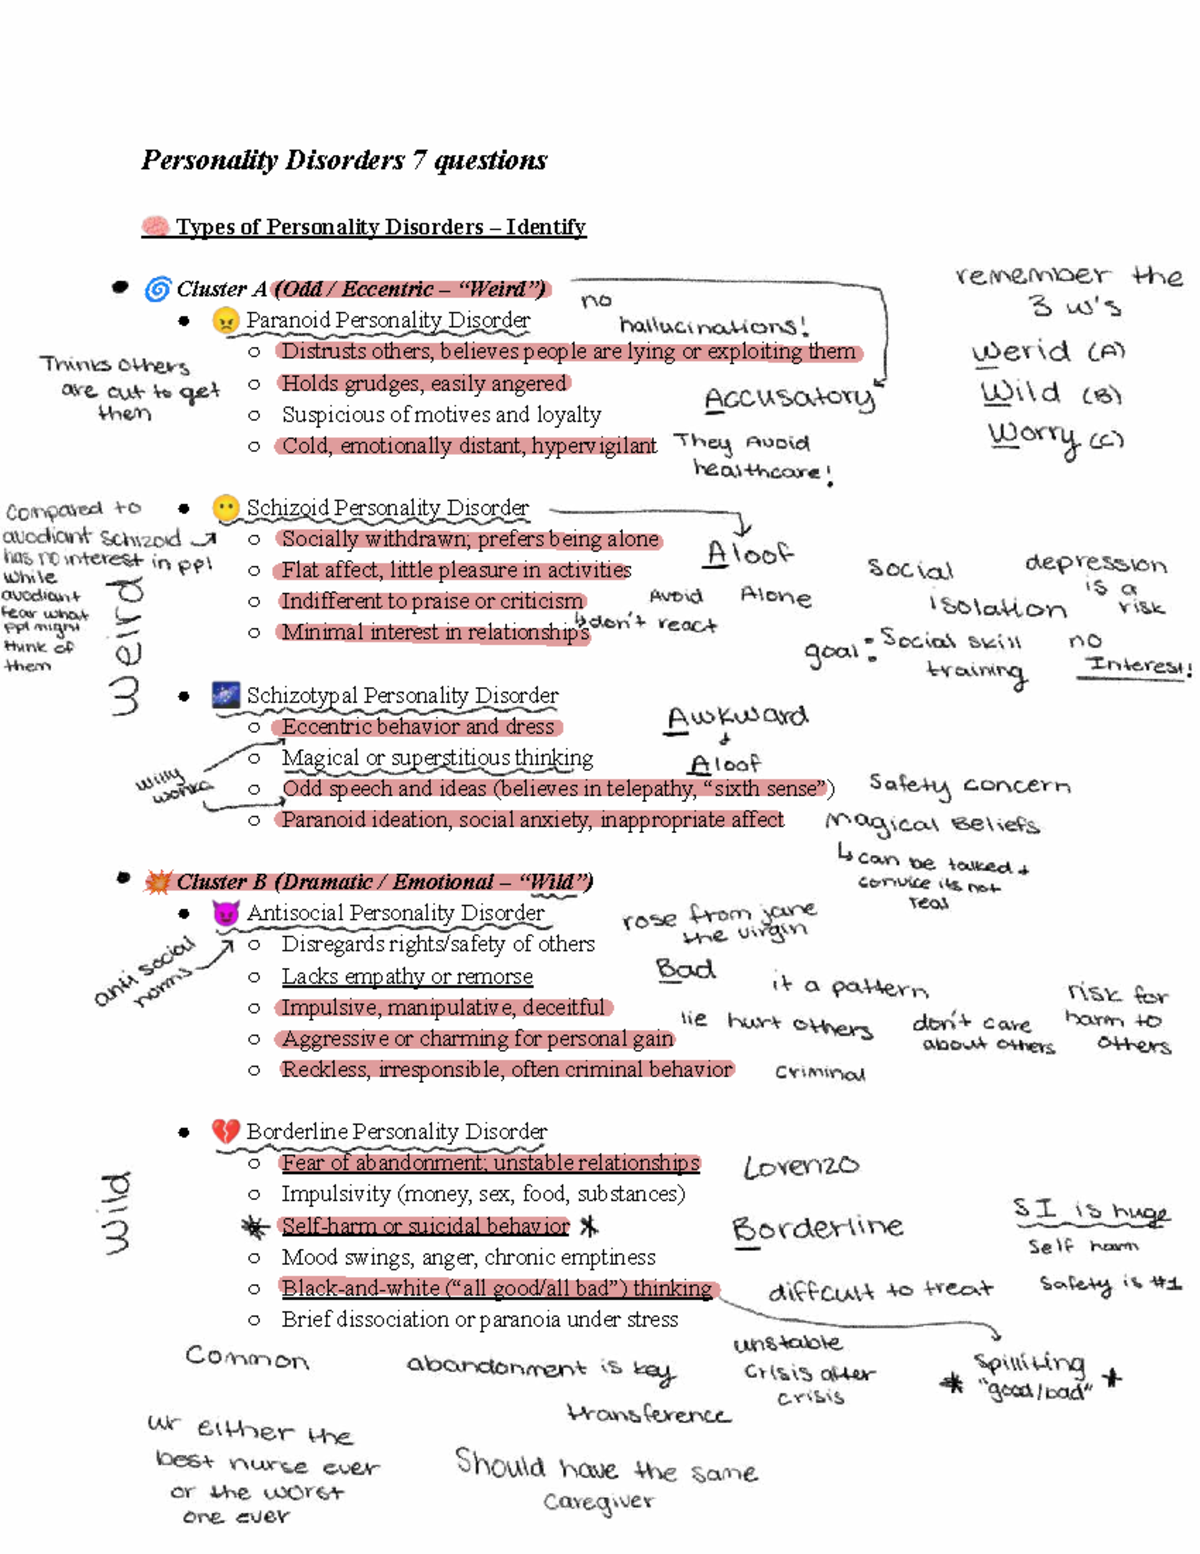 Personality Disorders 7 questions
🧠 Types of Personality Disorders – Identify
● 🌀 Cluster A (Odd / Eccentric – “Weird”)
● 😠 Paranoid Personality Disorder
no
hallucinations!
○ Distrusts others, believes people are lying or exploiting them
○ Holds grudges, easily angered
○ Suspicious of motives and loyalty
○ Cold, emotionally distant, hypervigilant
Thinks others
are out to get
them
Accusatory
They Avoid
healthcare!
remember the
3 w's
Werid (A)
Wild (B)
Worry (C)
● 😶 Schizoid Personality Disorder
○ Socially withdrawn; prefers being alone
○ Flat affect, little pleasure in activities
○ Indifferent to praise or criticism
○ Minimal interest in relationships
Compared to
avodiant Schizoid
has no interest in ppl
while
avodiant
fear what
ppl might
think of
them
Weird
Aloof
Avoid Alone
↳don't react
Social
isolation
depression
is a
risk
goal: Social skill
training
no
Interest!
● 🌌 Schizotypal Personality Disorder
○ Eccentric behavior and dress
○ Magical or superstitious thinking
○ Odd speech and ideas (believes in telepathy, “sixth sense”)
○ Paranoid ideation, social anxiety, inappropriate affect
willy
wonka
Awkward
+
Aloof
Safety concern
Magical Beliefs
↳can be talked +
convice its not
real
● 💥 Cluster B (Dramatic / Emotional – “Wild”)
● 😈 Antisocial Personality Disorder
○ Disregards rights/safety of others
○ Lacks empathy or remorse
○ Impulsive, manipulative, deceitful
○ Aggressive or charming for personal gain
○ Reckless, irresponsible, often criminal behavior
anti social
norms
rose from jane
the virgin
Bad
it a pattern
lie hurt others
don't care
about others
risk for
harm to
others
criminal
● 💔 Borderline Personality Disorder
○ Fear of abandonment; unstable relationships
○ Impulsivity (money, sex, food, substances)
* Self-harm or suicidal behavior *
○ Mood swings, anger, chronic emptiness
○ Black-and-white (“all good/all bad”) thinking
○ Brief dissociation or paranoia under stress
Wild
Lorenzo
Borderline
SI is huge
Self harm
Safety is #1
difficult to treat
Common
abandonment is key
unstable
Crisis after
crisis
* Spliiting *
"good/bad"
transference
ur either the
best nurse ever
or the worst
one ever
Should have the same
caregiver